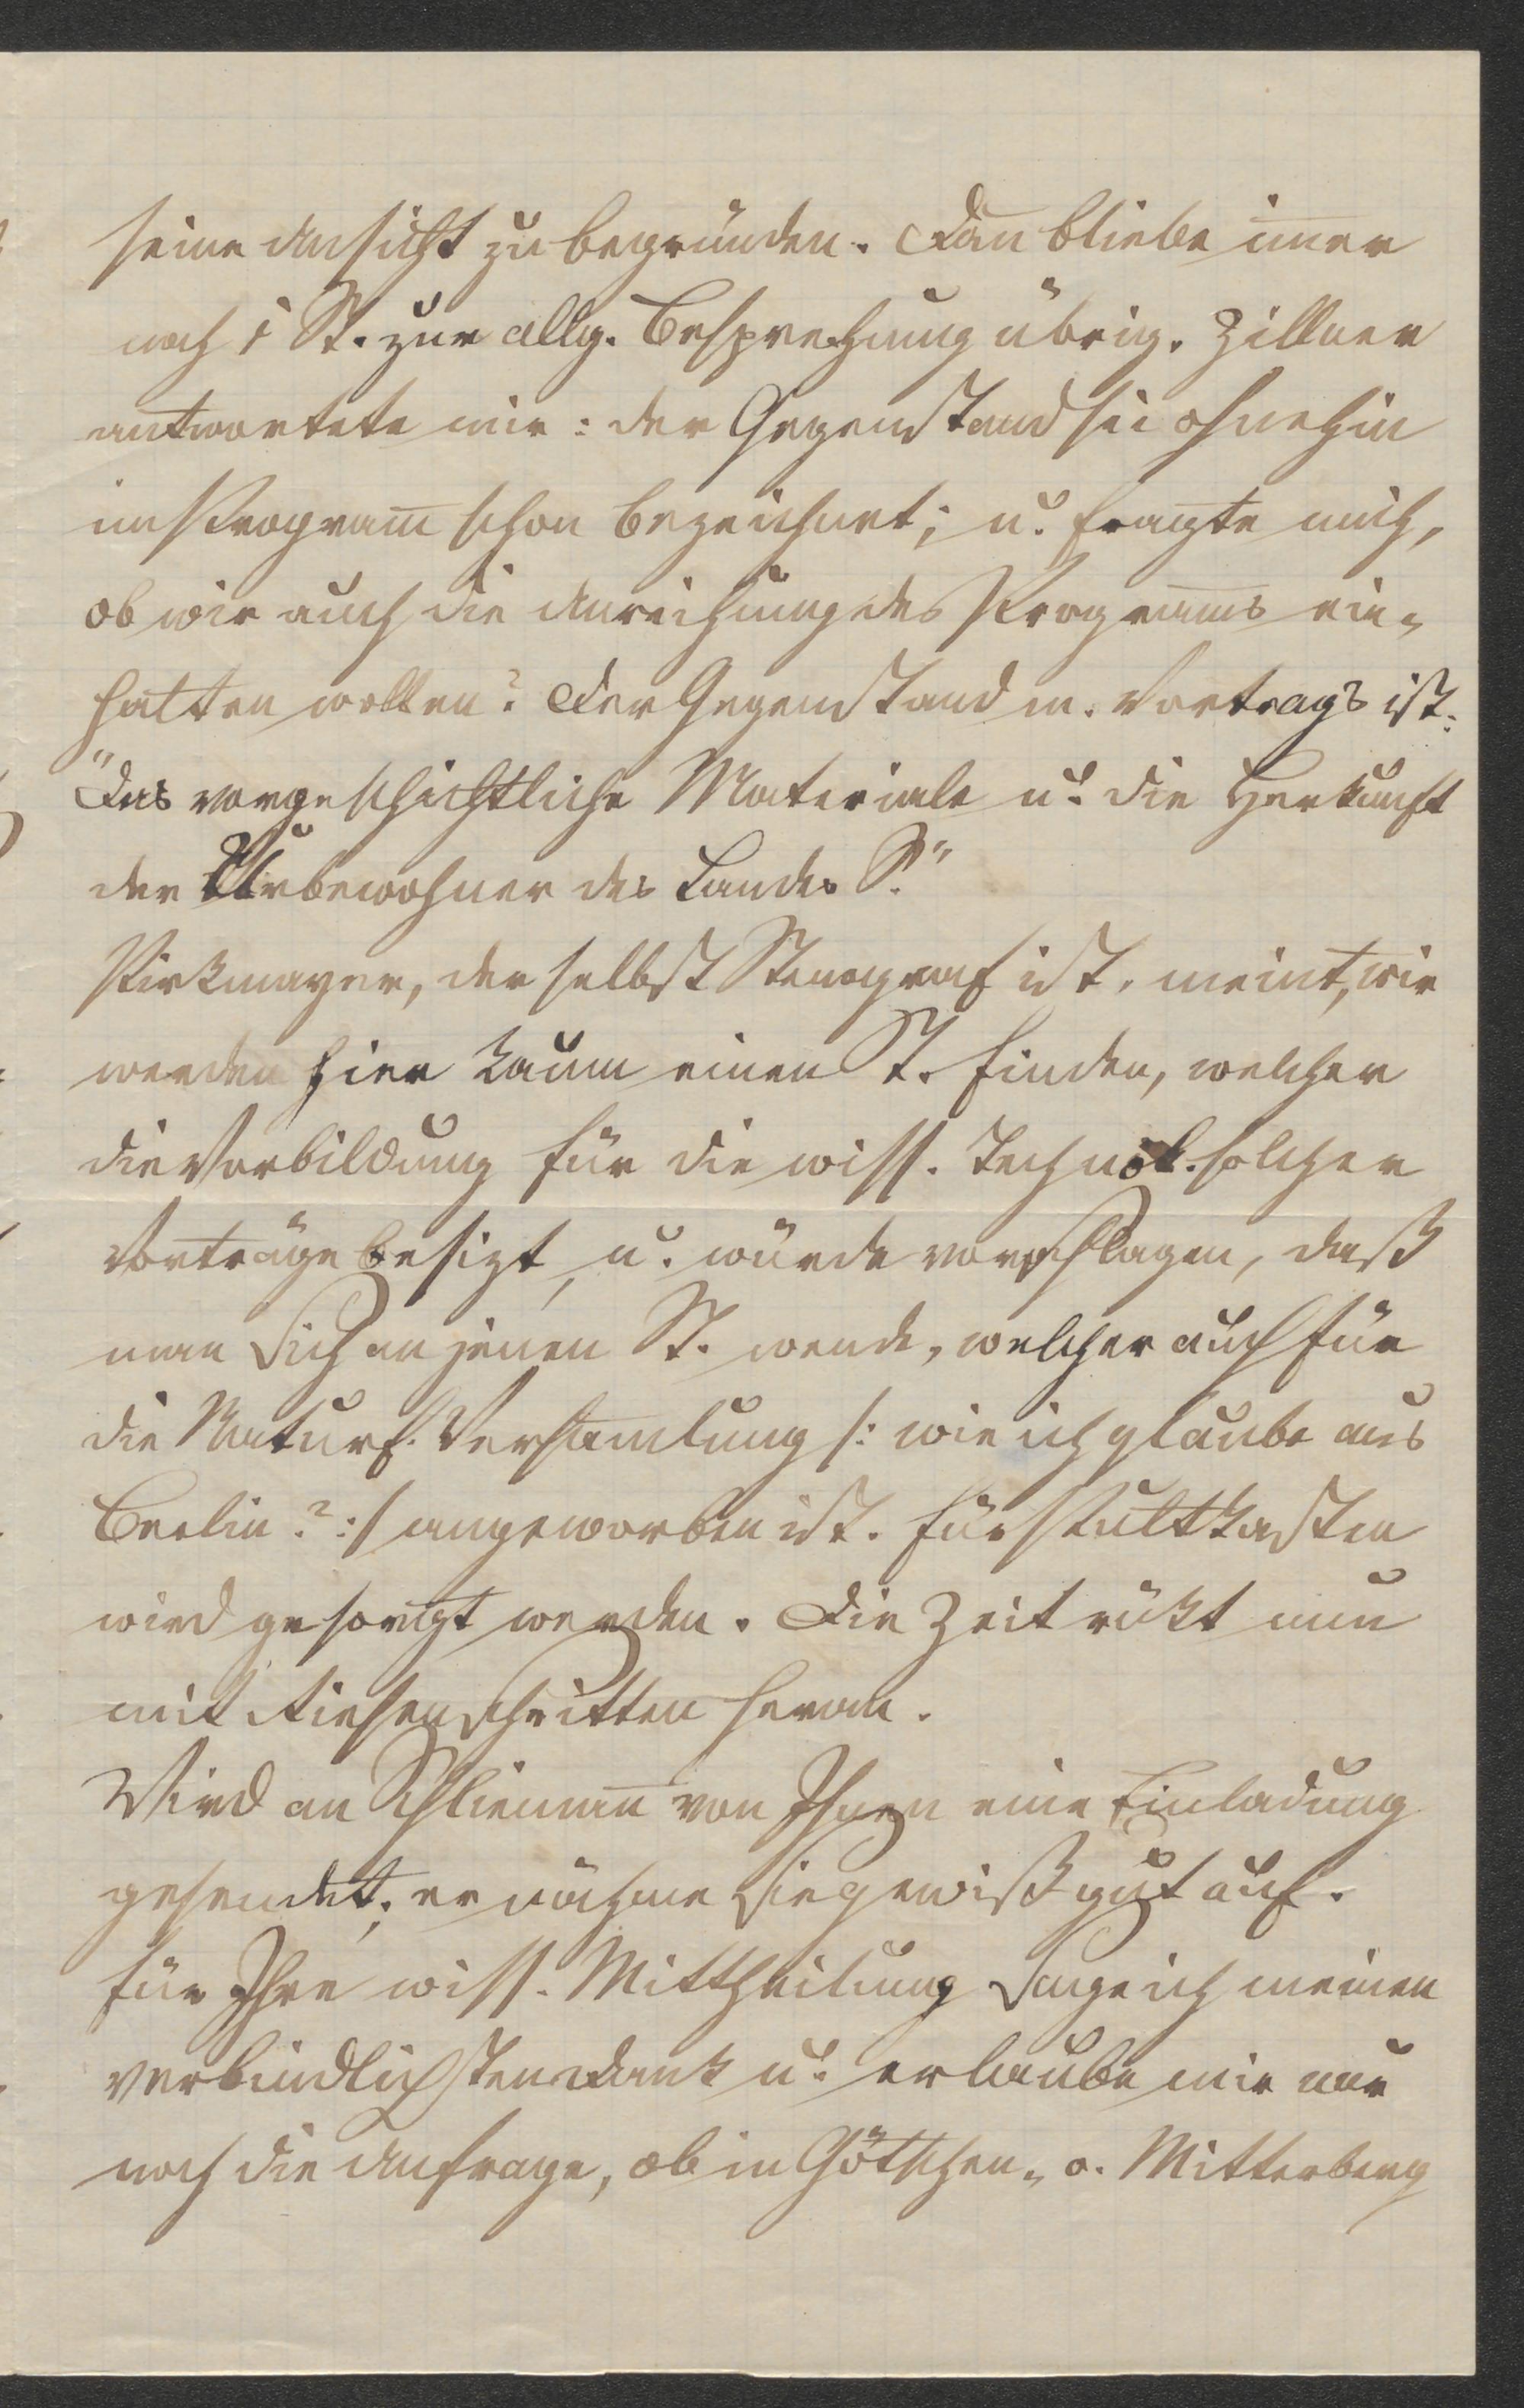 seine Ansicht zu begründen. Dan̅ bliebe im̅er
noch 1 St. zur allg. Besprechung übrig. Zillner
antwortete mir: der Gegenstand sei ohnehin
im Program̅ schon bezeichnet; u. fragte mich,
ob wir auch die Anreihung des Program̅s ein-
halten wollen? Der Gegenstand m. Vortrags ist:
"Das vorgeschichtliche Materiale u. die Herkunft
der Urbewohner des Landes S."
Pirkmayer, der selbst Stenograf ist, meint, wir
werden hier kaum einen St. finden, welcher
die Vorbildung für die wiss. Technol. solcher
Vorträge besizt, u. würde vorschlagen, daß
man sich an jenen St. wende, welcher auch für
die Naturf. Versam̅lung /: wie ich glaube aus
Berlin?:/ angeworben ist. Für Pultkasten
wird gesorgt werden. Die Zeit rükt nun
mit Riesenschritten heran.
Wird an Schlieman̅ von Ihnen eine Einladung
gesendet; er nähme sie gewiß gut auf.
Für Ihre wiss. Mittheilung sage ich meinen
verbindlichsten Dank u. erlaube mir nur
noch die Anfrage, ob in Götschen- o. Mitterberg